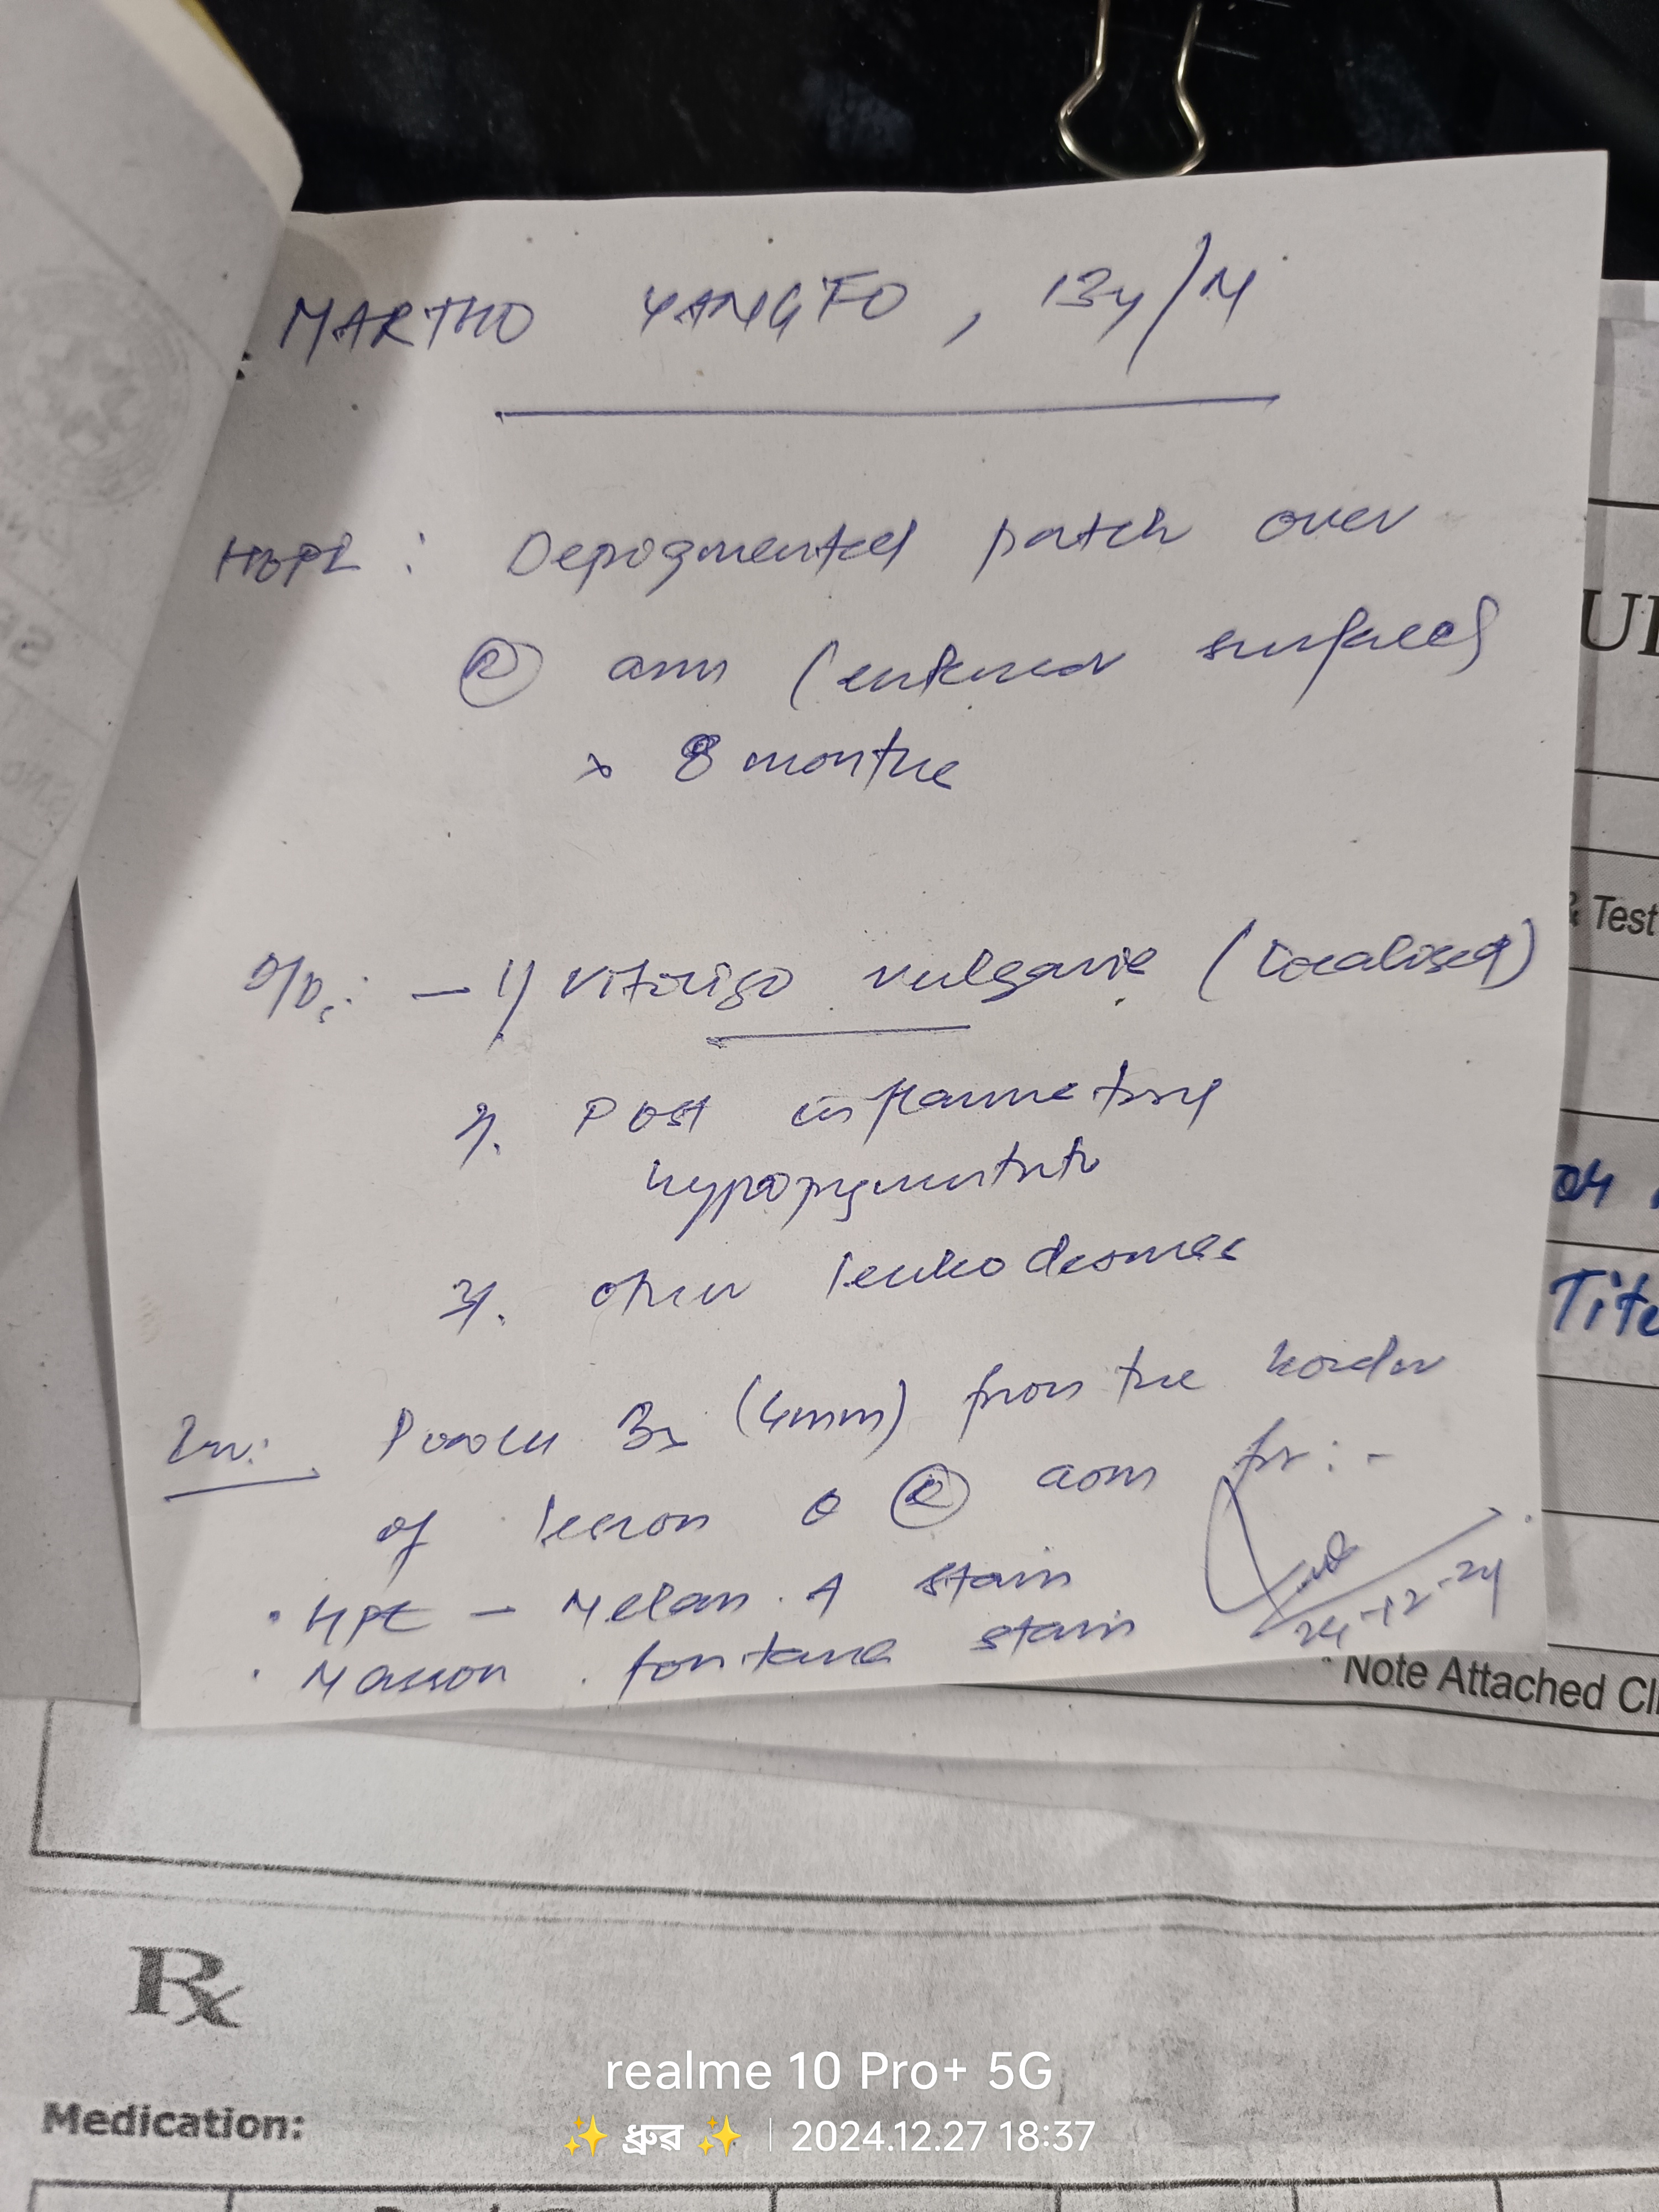 MARTHO YANGFO, 13y/M
HOPI : Depigmented patch over
(R) arm (extensor surface)
x 8 months
D/D: - 1) Vitiligo vulgaris (Localised)
2). Post inflammatory
hypopigmentatn
3). Other leukodermas
Inv: Punch Bx (4mm) from the border
of lesion o (R) arm for :-
• HPE - Melan. A stain
• Masson. fontana stain
24-12-24
& Test
Note Attached Cli
Rx
Medication:
realme 10 Pro+ 5G
✨ ধ্ৰুৱ ✨ | 2024.12.27 18:37